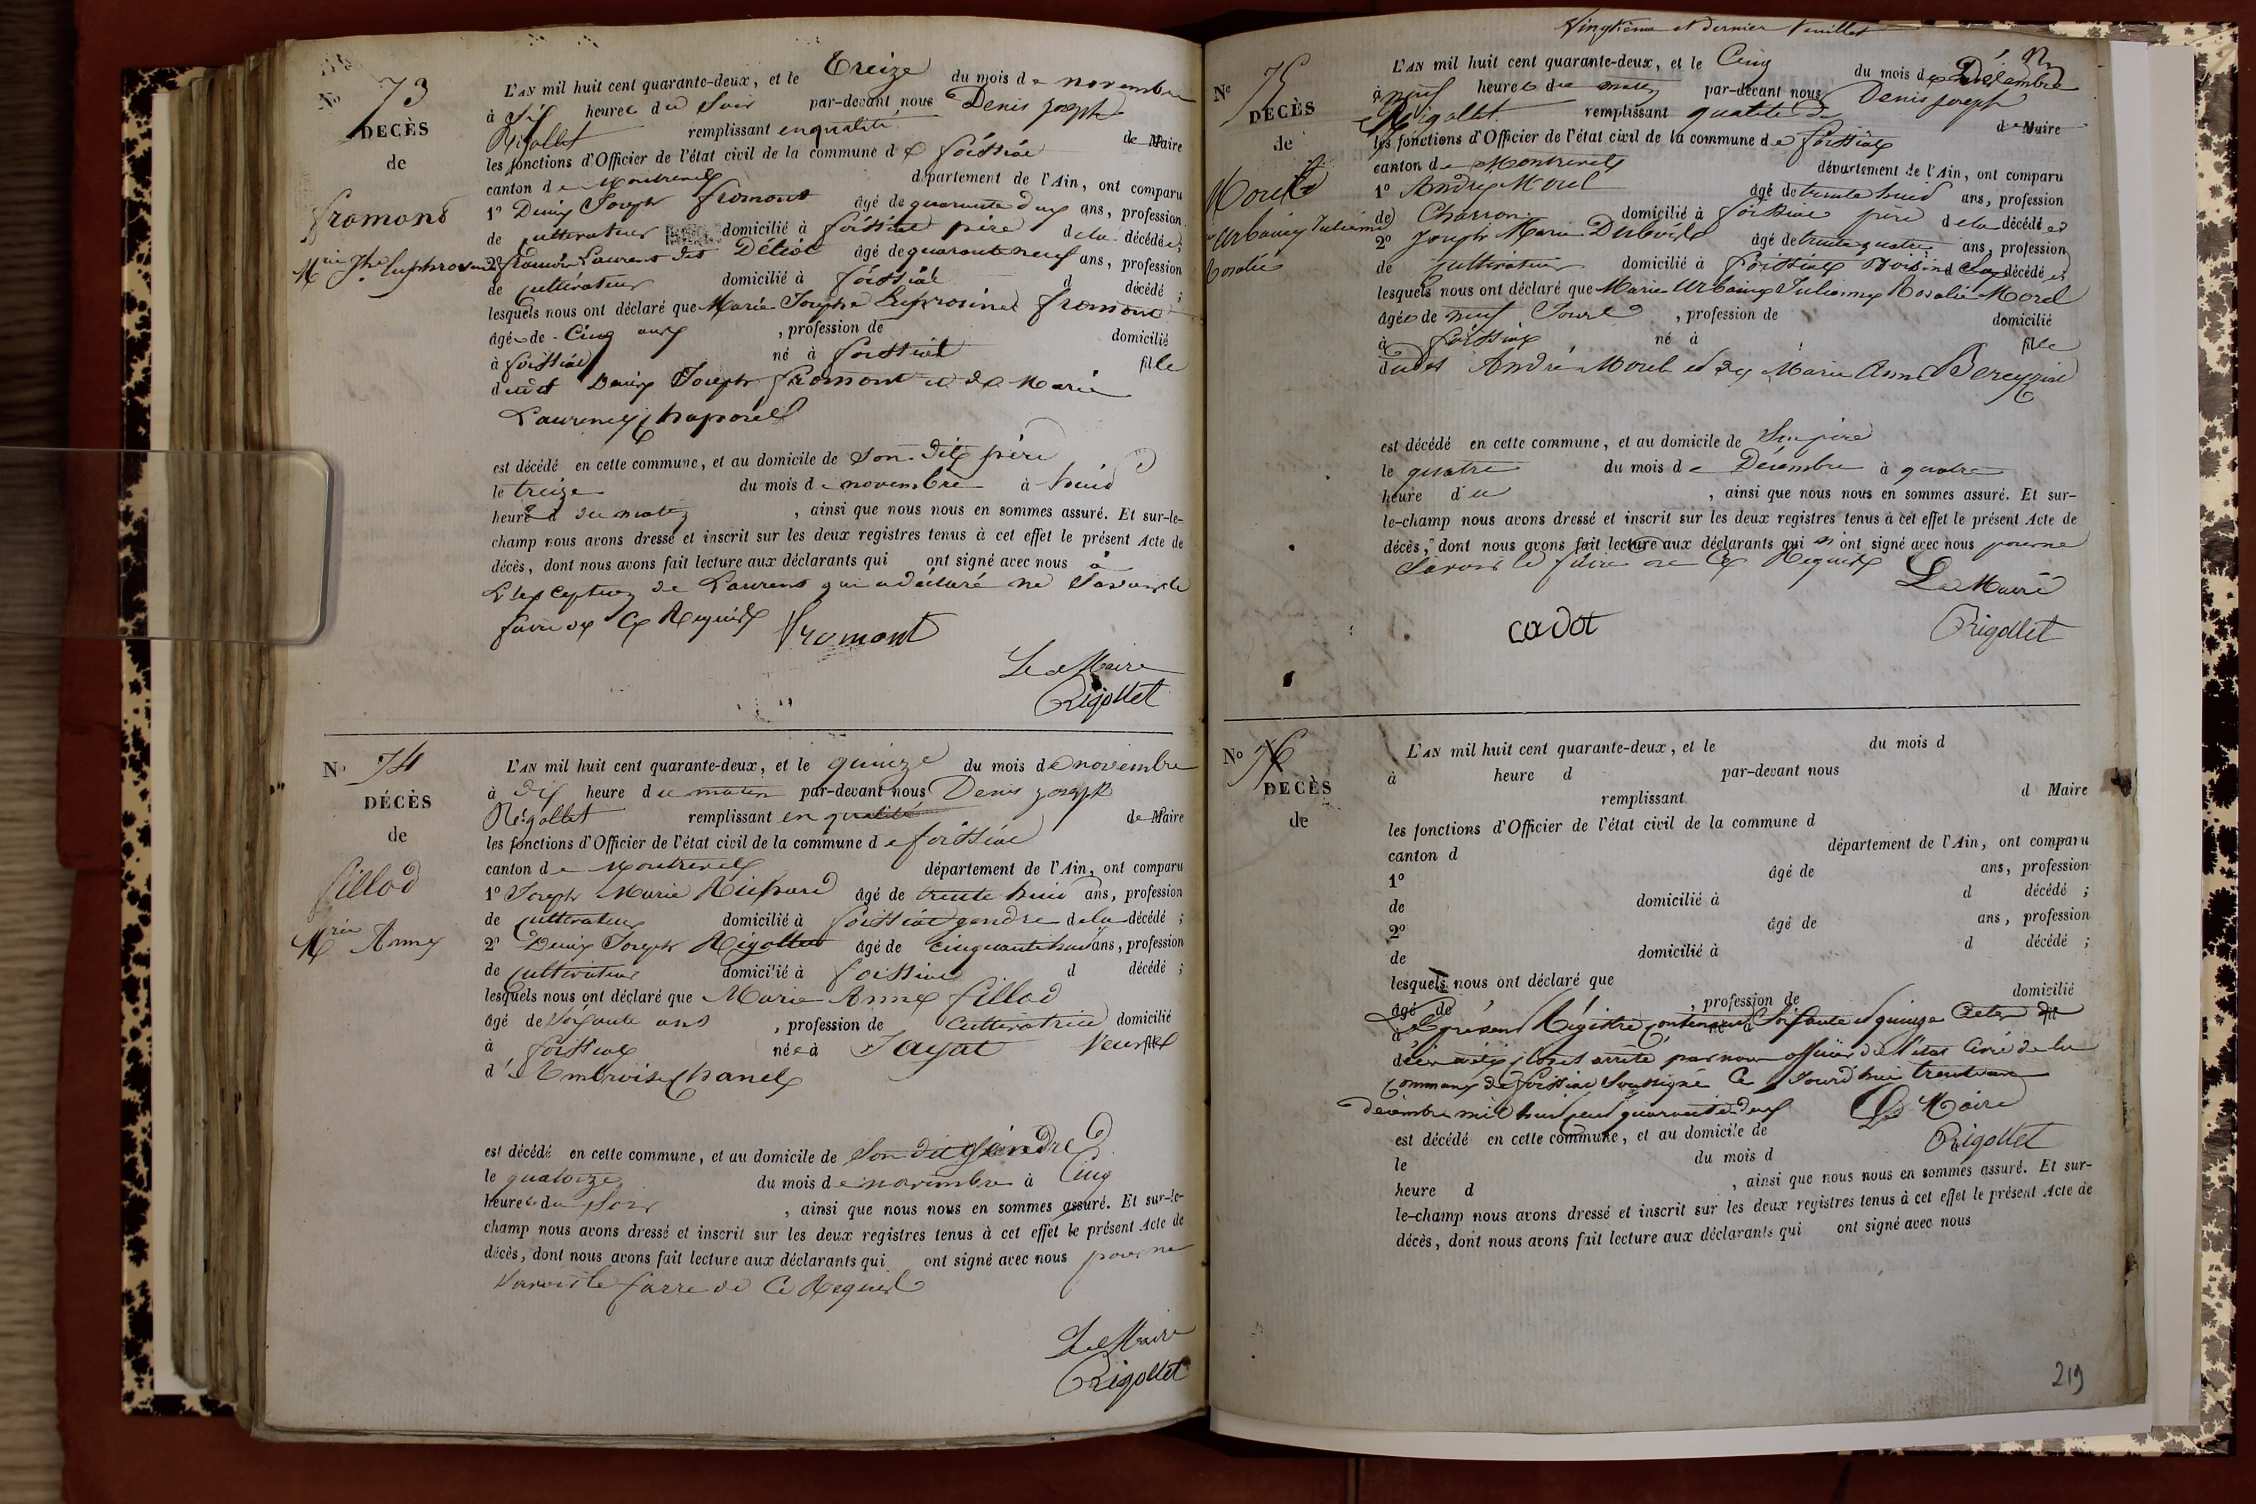 No 73
DECÈS
de
fromont
M.rie Jph Euphrosine
L'AN mil huit cent quarante-deux, et le Treize du mois de novembre
à six heures du Soir par-devant nous Denis joseph
Rigollet remplissant en qualité de Maire
les fonctions d'Officier de l'état civil de la commune de foissiat
canton de Montrevel département de l'Ain, ont comparu
1º Denis Joseph fromont âgé de quarante deux ans, profession
de cultivateur domicilié à foissiat père de la décédée;
2º françois Laurent dit âgé de quarante neuf ans, profession
de cultivateur domicilié à foissiat d décédé ;
lesquels nous ont déclaré que Marie Josephe Euprosine fromont
âgée de Cinq ans , profession de domicilié
à foissiat né à foissiat fille
dudit Denis Joseph fromont et de Marie
Laurence Chaponel
est décédé en cette commune, et au domicile de Son dit père
le treize du mois de novembre à huit
heure d du matin , ainsi que nous nous en sommes assuré. Et sur-le-
champ nous avons dressé et inscrit sur les deux registres tenus à cet effet le présent Acte de
décès, dont nous avons fait lecture aux déclarants qui ont signé avec nous à
L'exception de Laurent qui a déclaré ne Savoir le
faire de Ce Requis fromont
Le Maire
Rigollet
No 74
DÉCÈS
de
fillod
M.rie Anne
L'AN mil huit cent quarante-deux, et le quinze du mois de novembre
à dix heure du matin par-devant nous Denis joseph
Rigollet remplissant en qualité de Maire
les fonctions d'Officier de l'état civil de la commune de foissiat
canton de Montrevel département de l'Ain, ont comparu
1º Joseph Marie Richard âgé de trente huit ans, profession
de cultivateur domicilié à foissiat gendre de la décédé ;
2º Denis Joseph Rigollet âgé de cinquante huit ans, profession
de cultivateur domicilié à foissiat d décédé ;
lesquels nous ont déclaré que Marie Anne fillod
âgé de Soixante ans , profession de Cultivatrice domicilié
à foissiat née à Jayat Veuve
d'Embroise Chanel
est décédé en cette commune, et au domicile de Son dit gendre
le quatorze du mois de novembre à Cinq
heure du Soir , ainsi que nous nous en sommes assuré. Et sur-le-
champ nous avons dressé et inscrit sur les deux registres tenus à cet effet le présent Acte de
décès, dont nous avons fait lecture aux déclarants qui ont signé avec nous pour ne
Savoir le faire de Ce Requis
Le Maire
Rigollet
Vingtième et dernier feuillet
No 75
DÉCÈS
de
Morel
Urbaine Julienne
Rosalie
L'AN mil huit cent quarante-deux, et le Cinq du mois de Décembre
à neuf heures du matin par-devant nous Denis joseph
Rigollet remplissant qualité de de Maire
les fonctions d'Officier de l'état civil de la commune de foissiat
canton de Montrevel département de l'Ain, ont comparu
1º André Morel âgé de trente huit ans, profession
de Charron domicilié à foissiat père de la décédé et
2º Joseph Marie âgé de trente quatre ans, profession
de cultivateur domicilié à foissiat Voisin d décédé ;
lesquels nous ont déclaré que Marie Urbaine Julienne Rosalie Morel
âgée de neuf Jours , profession de domicilié
à foissiat né à fille
dudit André Morel et de Marie Anne
est décédé en cette commune, et au domicile de Son père
le quatre du mois de Décembre à quatre
heure du , ainsi que nous nous en sommes assuré. Et sur-
le-champ nous avons dressé et inscrit sur les deux registres tenus à cet effet le présent Acte de
décès, dont nous avons fait lecture aux déclarants qui n'ont signé avec nous pour ne
Savoir le faire de Ce Requis Le Maire
cadot Rigollet
No 76
DÉCÈS
de
L'AN mil huit cent quarante-deux, et le du mois d
à heure d par-devant nous
remplissant d Maire
les fonctions d'Officier de l'état civil de la commune d
canton d département de l'Ain, ont comparu
1º âgé de ans, profession
de domicilié à d décédé ;
2º âgé de ans, profession
de domicilié à d décédé ;
lesquels nous ont déclaré que
âgé de , profession de domicilié
Le présent Régistre contenant Soixante et quinze actes de
décès a été clos et arrêté par nous officier de l'état Civil de la
Commune de foissiat Soussigné Ce Jourd'hui trente un
décembre mil huit cent quarante deux Le Maire
est décédé en cette commune, et au domicile de Rigollet
le du mois d
heure d , ainsi que nous nous en sommes assuré. Et sur-
le-champ nous avons dressé et inscrit sur les deux registres tenus à cet effet le présent Acte de
décès, dont nous avons fait lecture aux déclarants qui ont signé avec nous
219